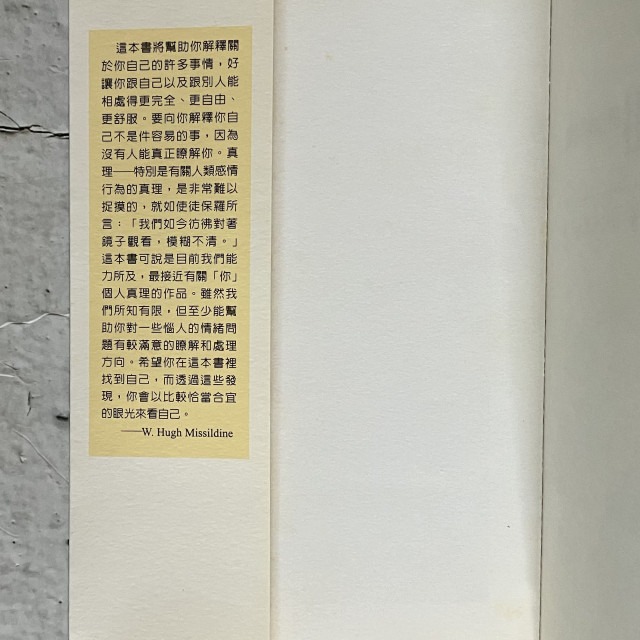 這本書將幫助你解釋關
於你自己的許多事情，好
讓你跟自己以及跟別人能
相處得更完全、更自由、
更舒服。要向你解釋你自
己不是件容易的事，因為
沒有人能真正瞭解你。真
理──特別是有關人類感情
行為的真理，是非常難以
捉摸的，就如使徒保羅所
言：「我們如今彷彿對著
鏡子觀看，模糊不清。」
這本書可說是目前我們能
力所及，最接近有關「你」
個人真理的作品。雖然我
們所知有限，但至少能幫
助你對一些惱人的情緒問
題有較滿意的瞭解和處理
方向。希望你在這本書裡
找到自己，而透過這些發
現，你會以比較恰當合宜
的眼光來看自己。
──W. Hugh Missildine